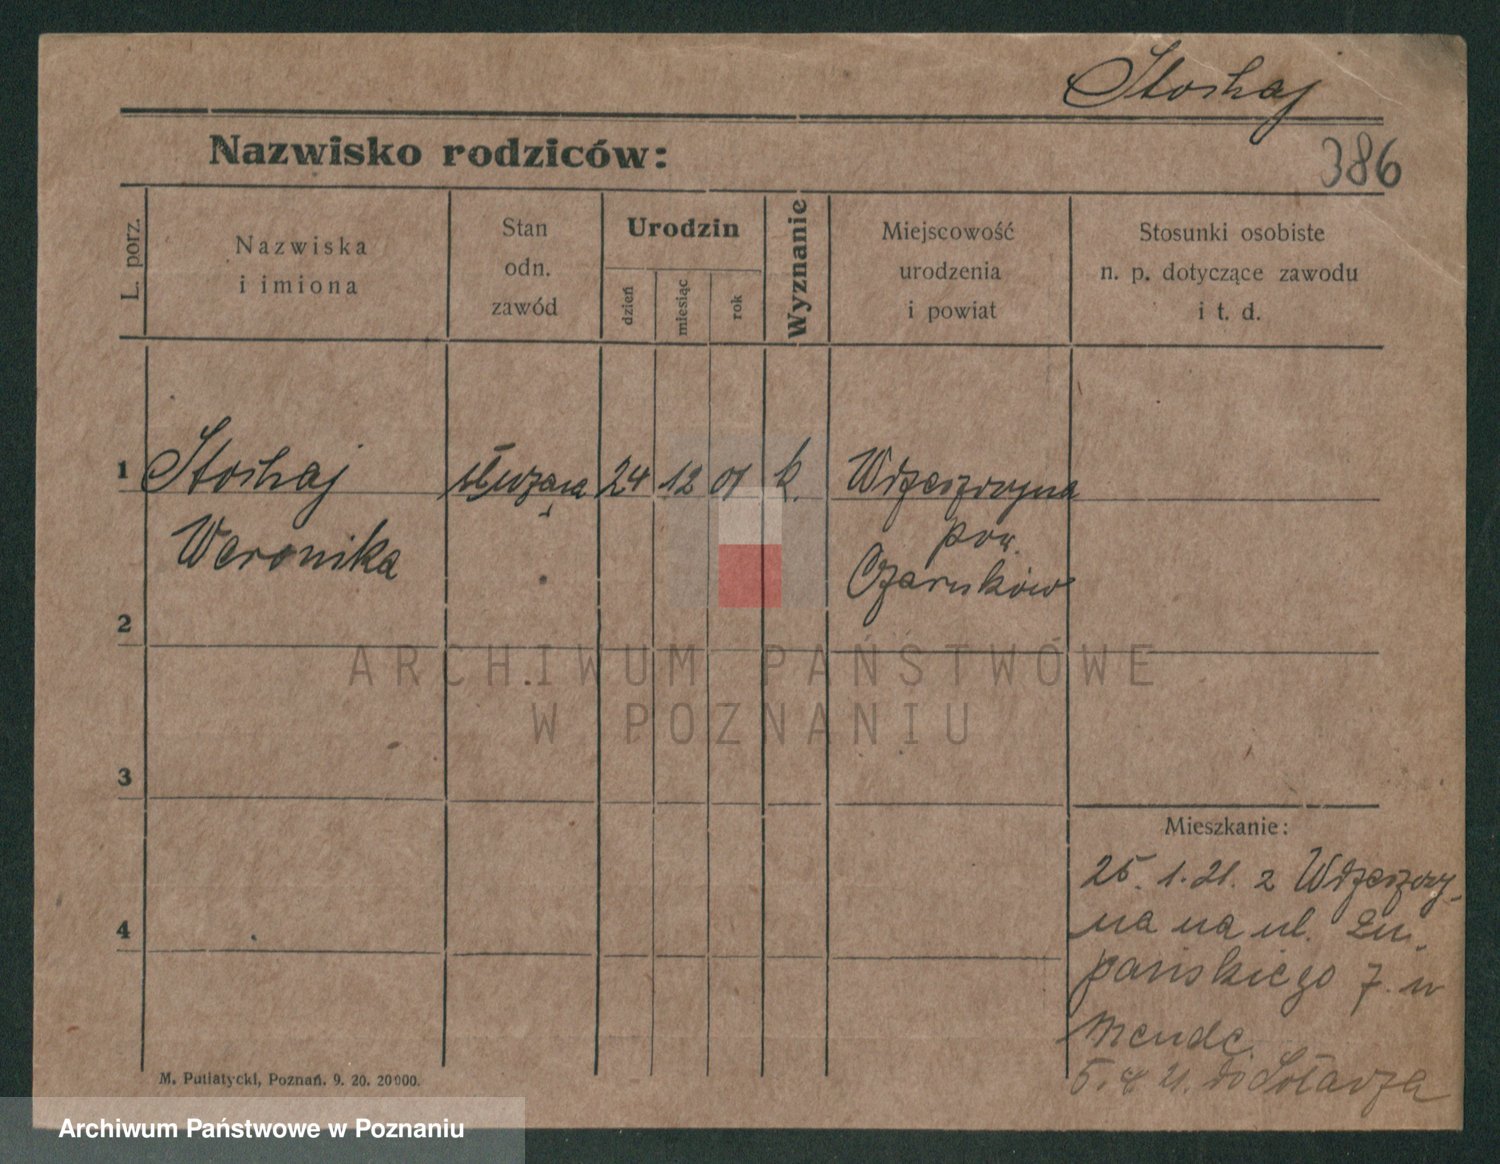 Stoshaj
Nazwisko rodziców:
386
L. porz.
Nazwiska
i imiona
Stan
odn.
zawód
Urodzin
dzień
miesiąc
rok
Wyznanie
Miejscowość
urodzenia
i powiat
Stosunki osobiste
n. p. dotyczące zawodu
i t. d.
1 Stoshaj służąca 24 12 01 k. Wrzeszczyna
Weronika pow.
Czarnków
2
ARCHIWUM PAŃSTWOWE
W POZNANIU
3
Mieszkanie:
25. 1. 21. z Wrzeszczy-
na na ul. Łu-
4
pańskiego 7. u
Mende.
5. 4 21. do Sołacza
M. Putiatycki, Poznań. 9. 20. 20000.
Archiwum Państwowe w Poznaniu